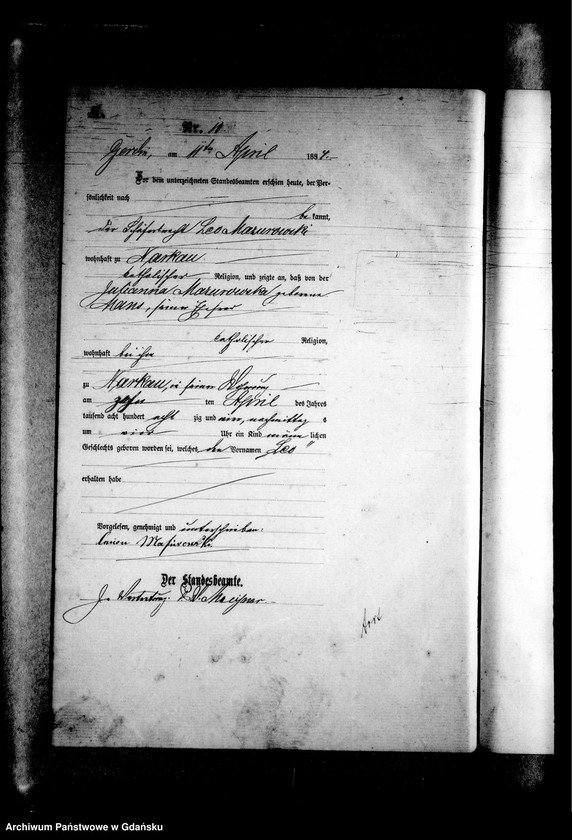 A.
Nr. 11
Gerdin, am 11ten April 1884.
Vor dem unterzeichneten Standesbeamten erschien heute, der Per-
sönlichkeit nach
be kannt,
der Leo Mazurowski
wohnhaft zu Narkau
katholischer Religion, und zeigte an, daß von der
Julianna Mazurowska geborene
seiner Ehefrau
katholischer Religion,
wohnhaft bei ihm
zu Narkau, in seiner Wohnung
am zehn ten April des Jahres
tausend acht hundert acht zig und vier, nachmittag s
um vier Uhr ein Kind männ lichen
Geschlechts geboren worden sei, welches den Vornamen
„Leo"
erhalten habe
Vorgelesen, genehmigt und unterschrieben:
Masurowski
Der Standesbeamte.
In Vertretung.
Archiwum Państwowe w Gdańsku